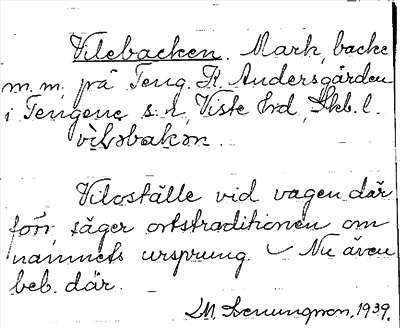 Vilebacken. Mark, backe
m.m. på Teng. K. Andersgården
i Tengene s:n, Viste hd, Skb. l.
vìləbakən.
Viloställe vid vägen där
förr, säger ortstraditionen om
namnets ursprung. Nu även
beb. där.
1939.